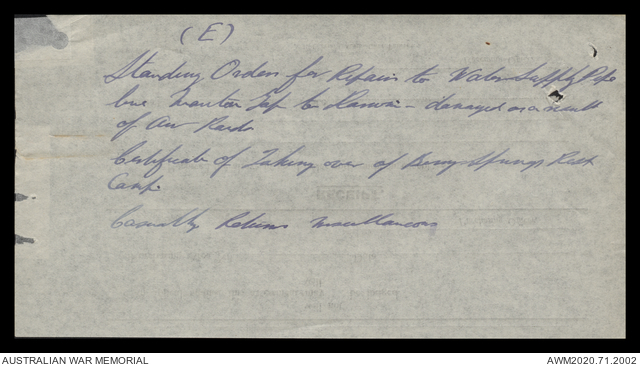 (E)
Standing Orders for Repairs to Water Supply Pipe
line Manton Gap to Darwin - damaged as a result
of Air Raids
Certificate of Taking over of Berry Springs Rest
Camp.
Casualty Returns miscellaneous
RECEIPT
AUSTRALIAN WAR MEMORIAL
AWM2020.71.2002